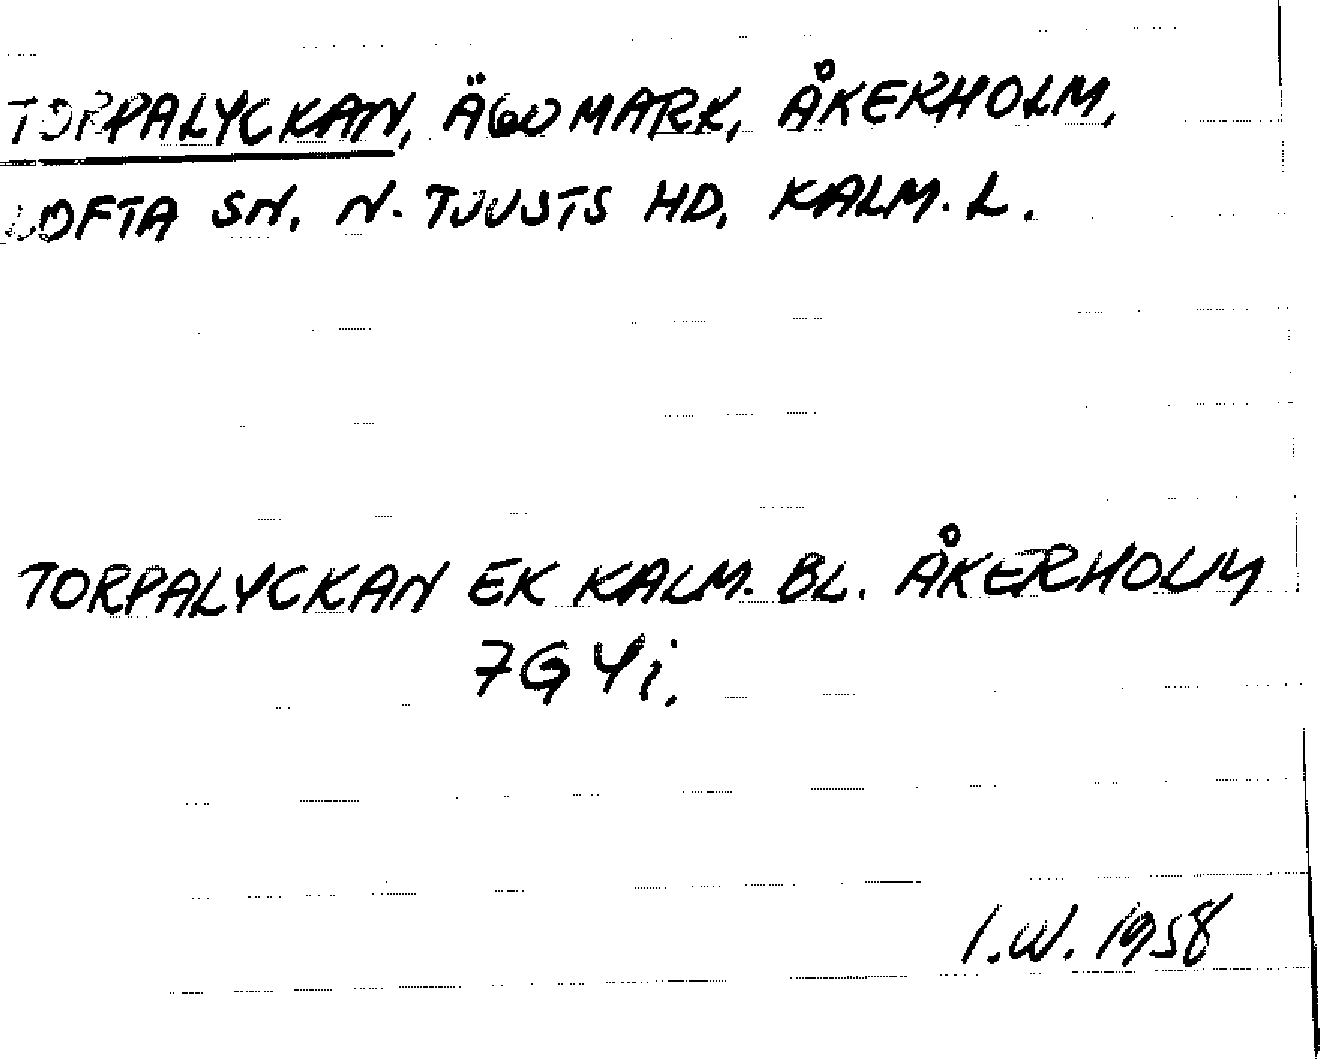 TORPALYCKAN, ÄGOMARK, ÅKERHOLM,
LOFTA SN. N. TJUSTS HD. KALM. L.
TORPALYCKAN EK KALM. BL. ÅKERHOLM
7G4i.
I.W. 1958